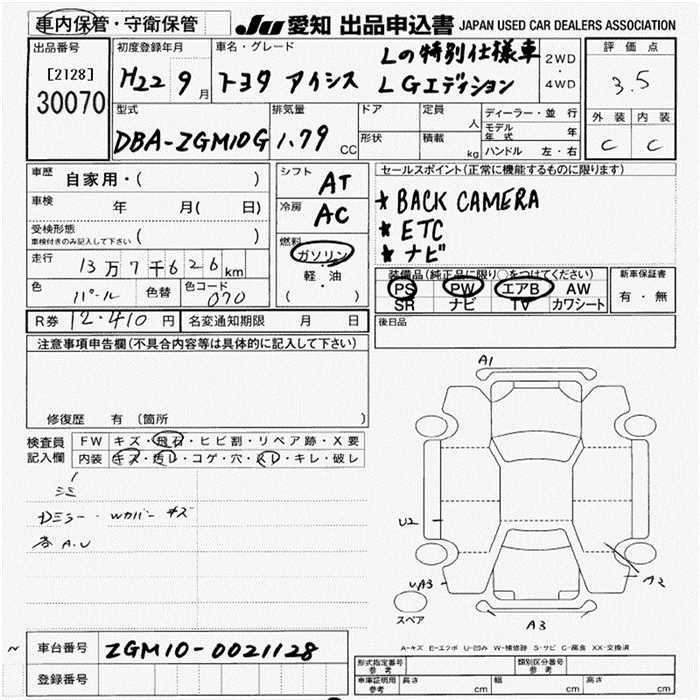 車内保管・守衛保管
JU 愛知 出品申込書 JAPAN USED CAR DEALERS ASSOCIATION
出品番号
[2128]
30070
初度登録年月
H22 9月
車名・グレード
トヨタ アイシス
Lの特別仕様車
LGエディション
2WD
・
4WD
評価点
3.5
外装 内装
C C
型式
DBA-ZGM10G
排気量
1.79 CC
ドア
形状
定員 人
積載 kg
ディーラー・並行
モデル年式 年
ハンドル 左・右
車歴 自家用・( )
車検 年 月( 日)
受検形態
車検付きのみ記入して下さい ( )
走行 13万7千626km
色 パール 色替 色コード 070
シフト AT
冷房 AC
燃料
ガソリン
・
軽・油
( ・ )
セールスポイント(正常に機能するものに限ります)
* BACK CAMERA
* ETC
* ナビ
装備品(純正品に限り○をつけてください)
PS PW エアB AW
SR ナビ TV カワシート
新車保証書
有・無
R券 12.410円 名変通知期限 月 日
後日品
注意事項申告欄(不具合内容等は具体的に記入して下さい)
修復歴 有 〔箇所 〕
検査員
記入欄
FW キズ・飛石・ヒビ割・リペア跡・X要
内装 キズ・汚レ・コゲ・穴・スレ・キレ・破レ
Dミラー・Wカバー キズ
A.U
A1
U2
UA3
A2
A3
スペア
A-キズ E-エクボ U-凹み W-補修跡 S-サビ C-腐食 XX-交換済
~ 車台番号 ZGM10-0021128
登録番号
形式指定番号
参考
類別区分番号
参考
車庫証明用
参考
長さ cm 幅 cm 高さ cm